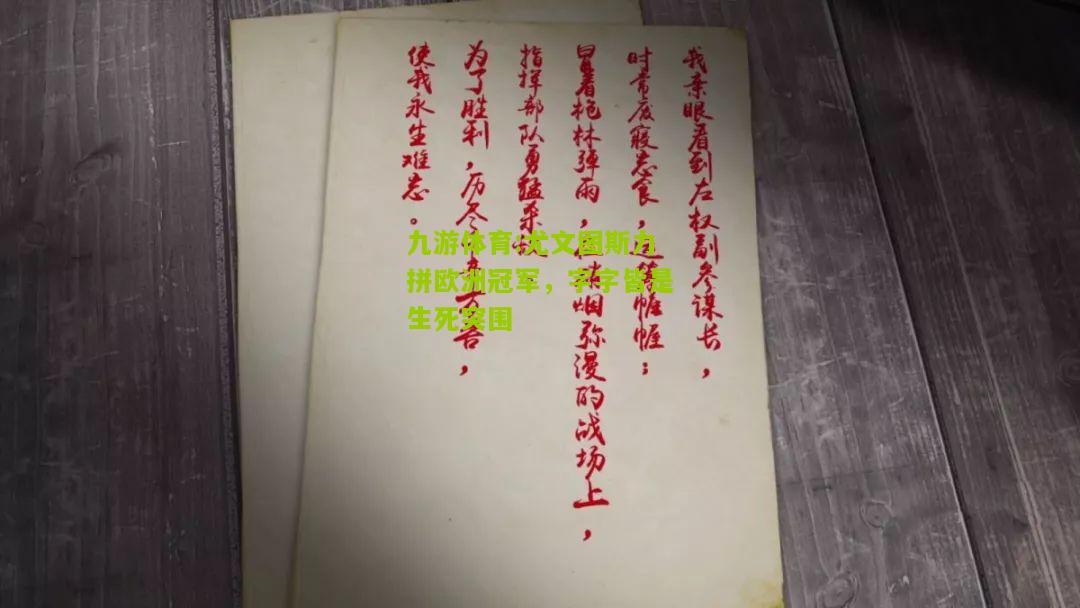 我亲眼看到左权副参谋长，
时常废寝忘食，运筹帷幄；
冒着枪林弹雨，硝烟弥漫的战场上，
指挥部队勇猛杀
为了胜利，历尽万苦，
使我永生难忘。
九游体育:尤文图斯力
拼欧洲冠军，字字皆是
生死突围